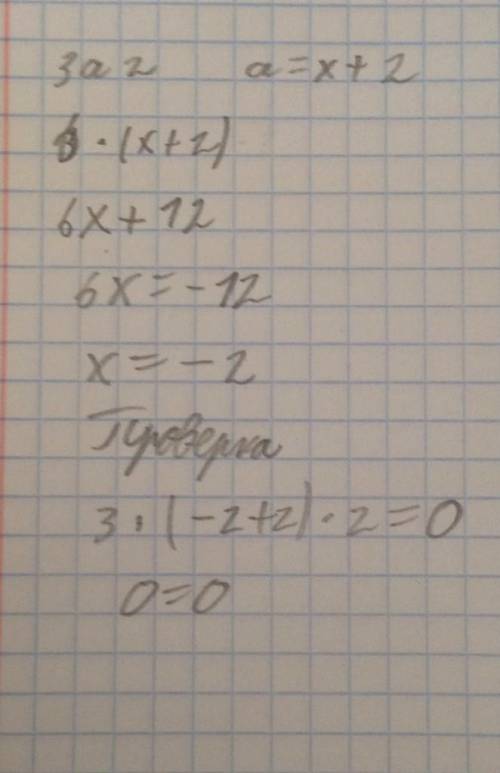 3a2 a=x+2
6·(x+2)
6x+12
6x=-12
x=-2
Проверка
3·(-2+2)·2=0
0=0